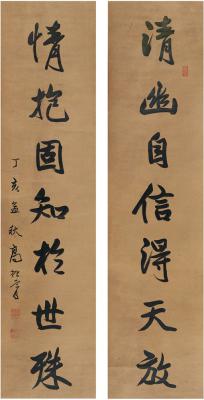 清幽自信得天放
情抱固知於世殊
丁亥孟秋 高